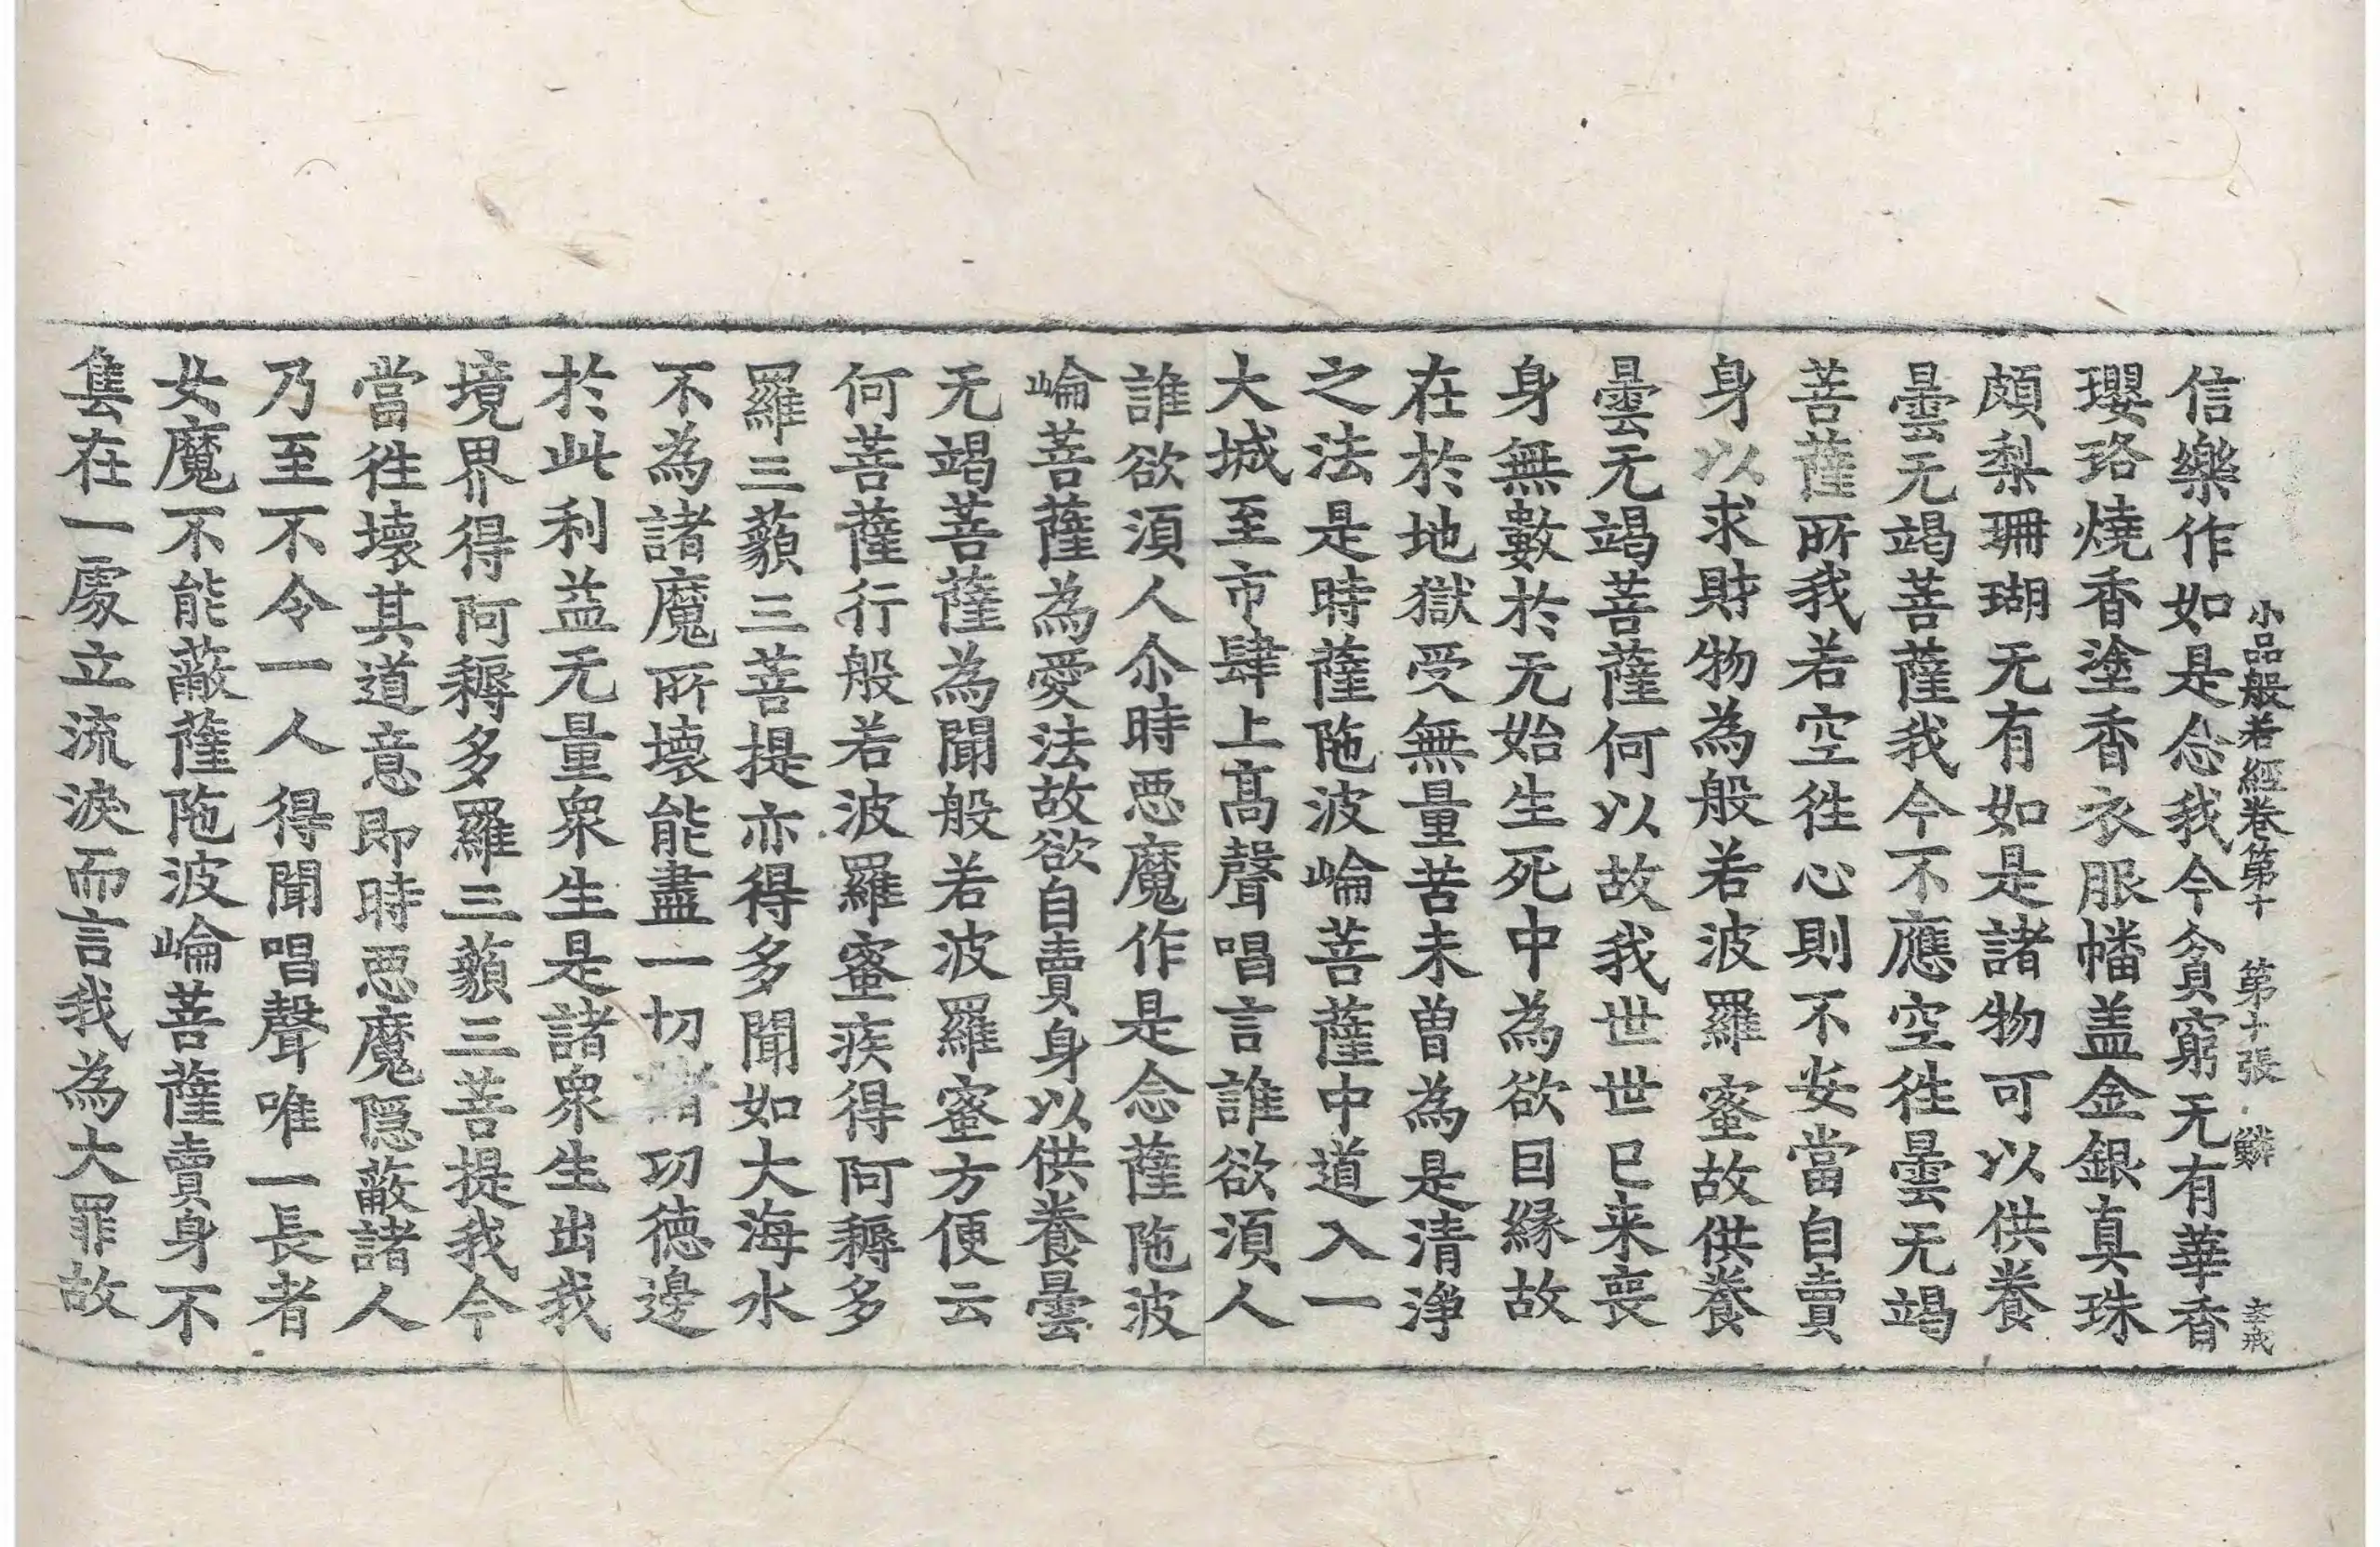 小品般若經卷第十 第十張 鱗 玄戒
信樂作如是念我今貧窮无有華香
瓔珞燒香塗香衣服幡盖金銀真珠
頗梨珊瑚无有如是諸物可以供養
曇无竭菩薩我今不應空徃曇无竭
菩薩所我若空徃心則不安當自賣
身以求財物為般若波羅蜜故供養
曇无竭菩薩何以故我世世已来喪
身無數於无始生死中為欲因緣故
在於地獄受無量苦未曾為是清淨
之法是時薩陁波崘菩薩中道入一
大城至市肆上高聲唱言誰欲湏人
誰欲湏人尒時悪魔作是念薩陁波
崘菩薩為愛法故欲自賣身以供養曇
无竭菩薩為聞般若波羅蜜方便云
何菩薩行般若波羅蜜疾得阿耨多
羅三藐三菩提亦得多聞如大海水
不為諸魔所壊能盡一切諸功德邊
於此利益无量衆生是諸衆生出我
境界得阿耨多羅三藐三菩提我今
當徃壊其道意即時悪魔隠蔽諸人
乃至不令一人得聞唱聲唯一長者
女魔不能蔽薩陁波崘菩薩賣身不
售在一處立流淚而言我為大罪故